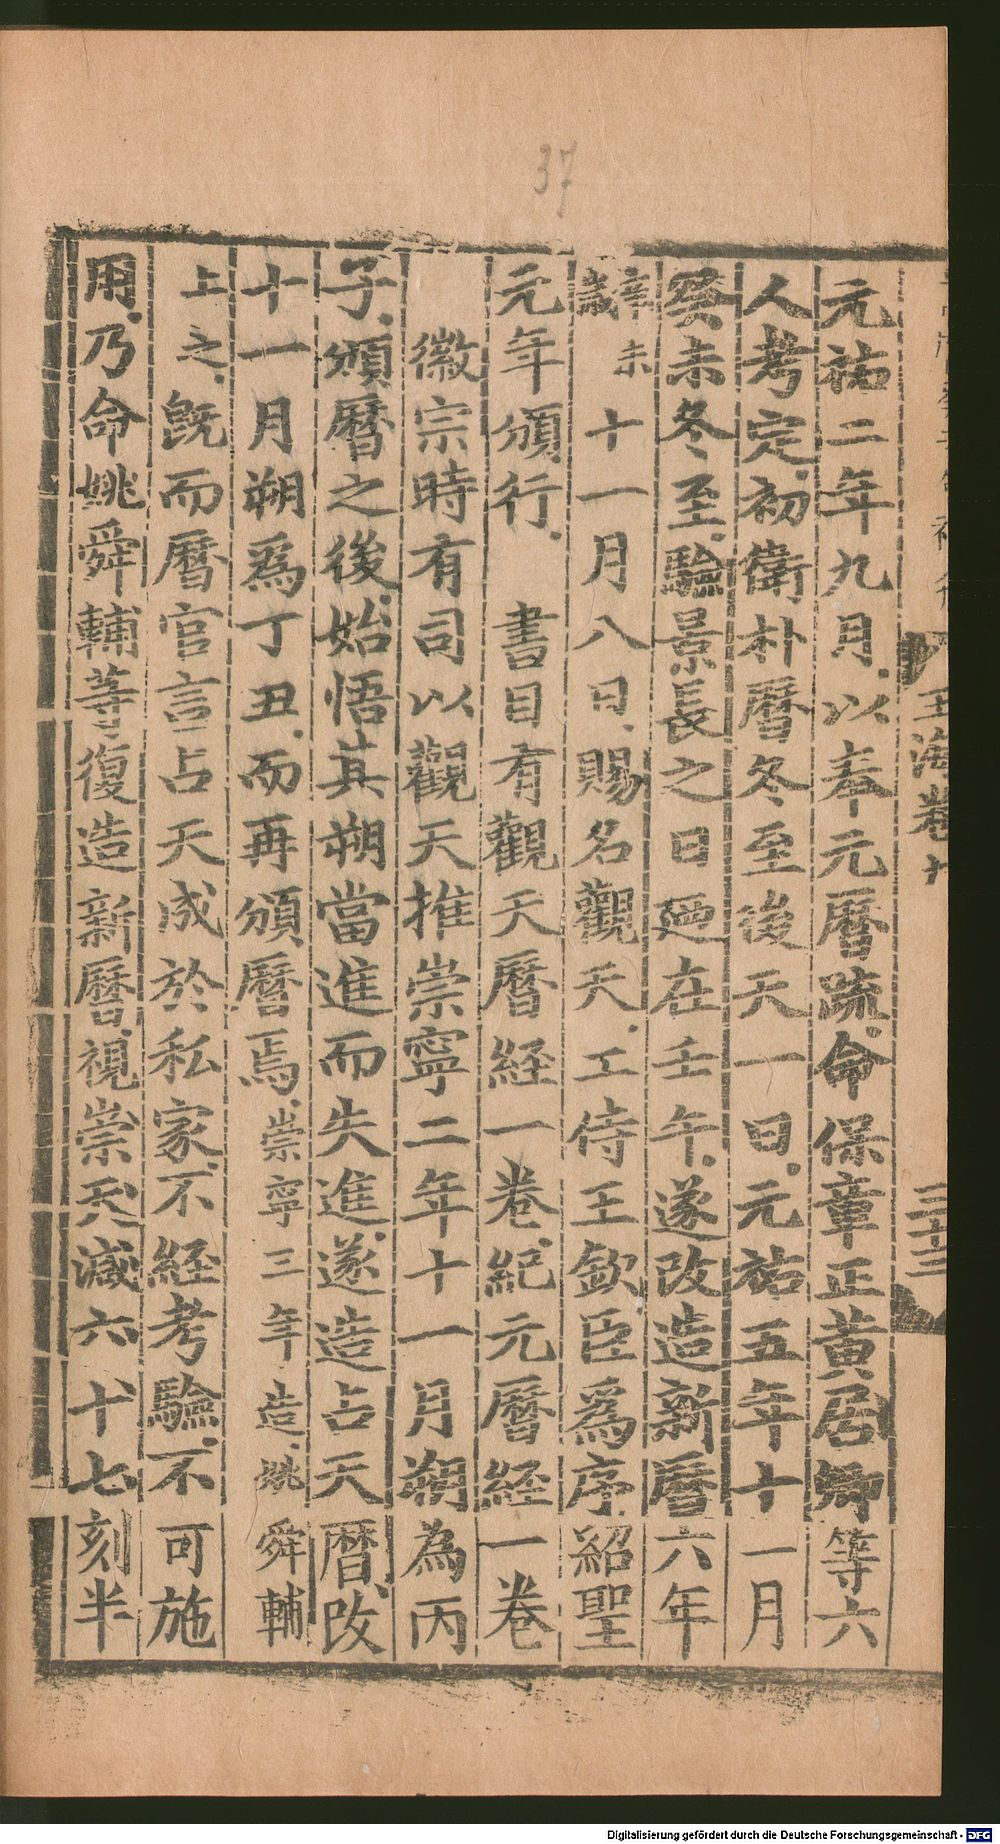 37
玉海卷十
三十三
元祐二年九月以奉元曆疏命保章正黃居卿等六
人考定初衛朴曆冬至後天一日元祐五年十一月
癸未冬至驗景長之日廼在壬午遂改造新曆六年
辛未歲十一月八日賜名觀天工侍王欽臣爲序紹聖
元年頒行 書目有觀天曆経一卷紀元曆経一卷
徽宗時有司以觀天推崇寧二年十一月朔為丙
子頒曆之後始悟其朔當進而失進遂造占天曆改
十一月朔爲丁丑而再頒曆焉崇寧三年造姚舜輔
上之既而曆官言占天成於私家不経考驗不可施
用乃命姚舜輔等復造新曆視崇天減六十七刻半
Digitalisierung gefördert durch die Deutsche Forschungsgemeinschaft - DFG